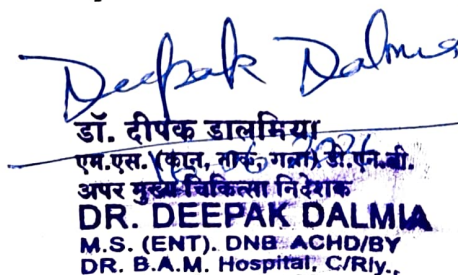 Deepak Dalmia
डॉ. दीपक डालमिया
एम.एस. (कान, नाक, गला) डी.एन.बी.
अपर मुख्य चिकित्सा निदेशक
DR. DEEPAK DALMIA
M.S. (ENT). DNB ACHD/BY
DR. B.A.M. Hospital, C/Rly.,